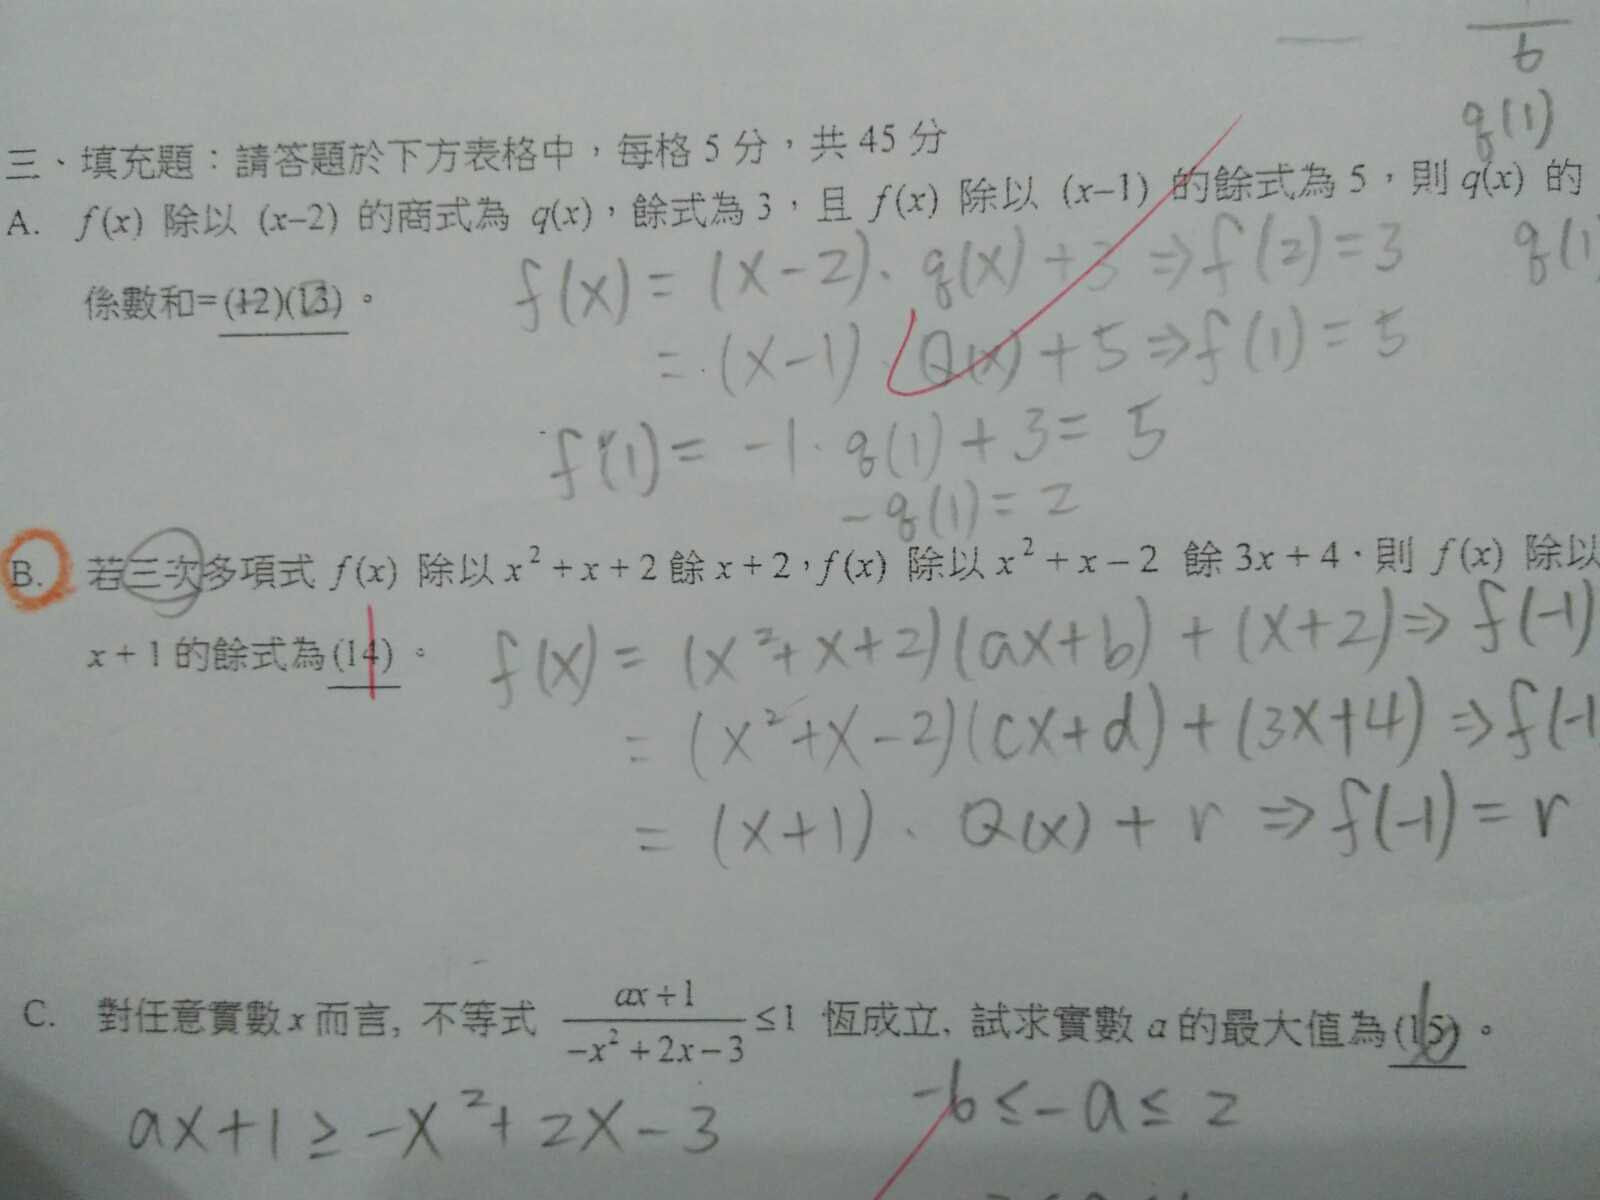 b
q(1)
三、填充題：請答題於下方表格中，每格5分，共45分
A. f(x) 除以 (x–2) 的商式為 q(x)，餘式為3，且 f(x) 除以 (x–1) 的餘式為5，則 q(x) 的
係數和=(12)(13)。
f(x) = (x-2)·q(x)+3 ⇒ f(2)=3
q(1)
= (x-1) Q(x)+5 ⇒ f(1)=5
f(1) = -1·q(1)+3=5
-q(1)=2
B. 若三次多項式 f(x) 除以 x²+x+2 餘 x+2，f(x) 除以 x²+x−2 餘 3x+4，則 f(x) 除以
x+1 的餘式為(14)。
f(x) = (x²+x+2)(ax+b)+(x+2) ⇒ f(-1)
= (x²+x-2)(cx+d)+(3x+4) ⇒ f(-1
= (x+1)·Q(x)+r ⇒ f(-1)=r
C. 對任意實數x而言, 不等式 (ax+1)/(−x²+2x−3) ≤1 恆成立, 試求實數 a 的最大值為(15)。
ax+1 ≥ -x²+2x-3
-6 ≤ -a ≤ 2